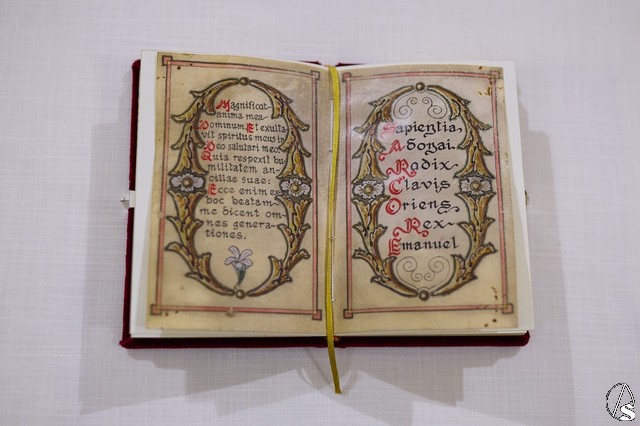 Magnificat
anima mea
Dominum. Et exulta-
vit spiritus meus in
Deo salutari meo.
Quia respexit hu
militatem an-
cillae suae:
Ecce enim ex
hoc beatam
me dicent om-
nes genera-
tiones.
Sapientia,
Adonai.
Radix-
Clavis
Oriens,
Rex-
Emanuel